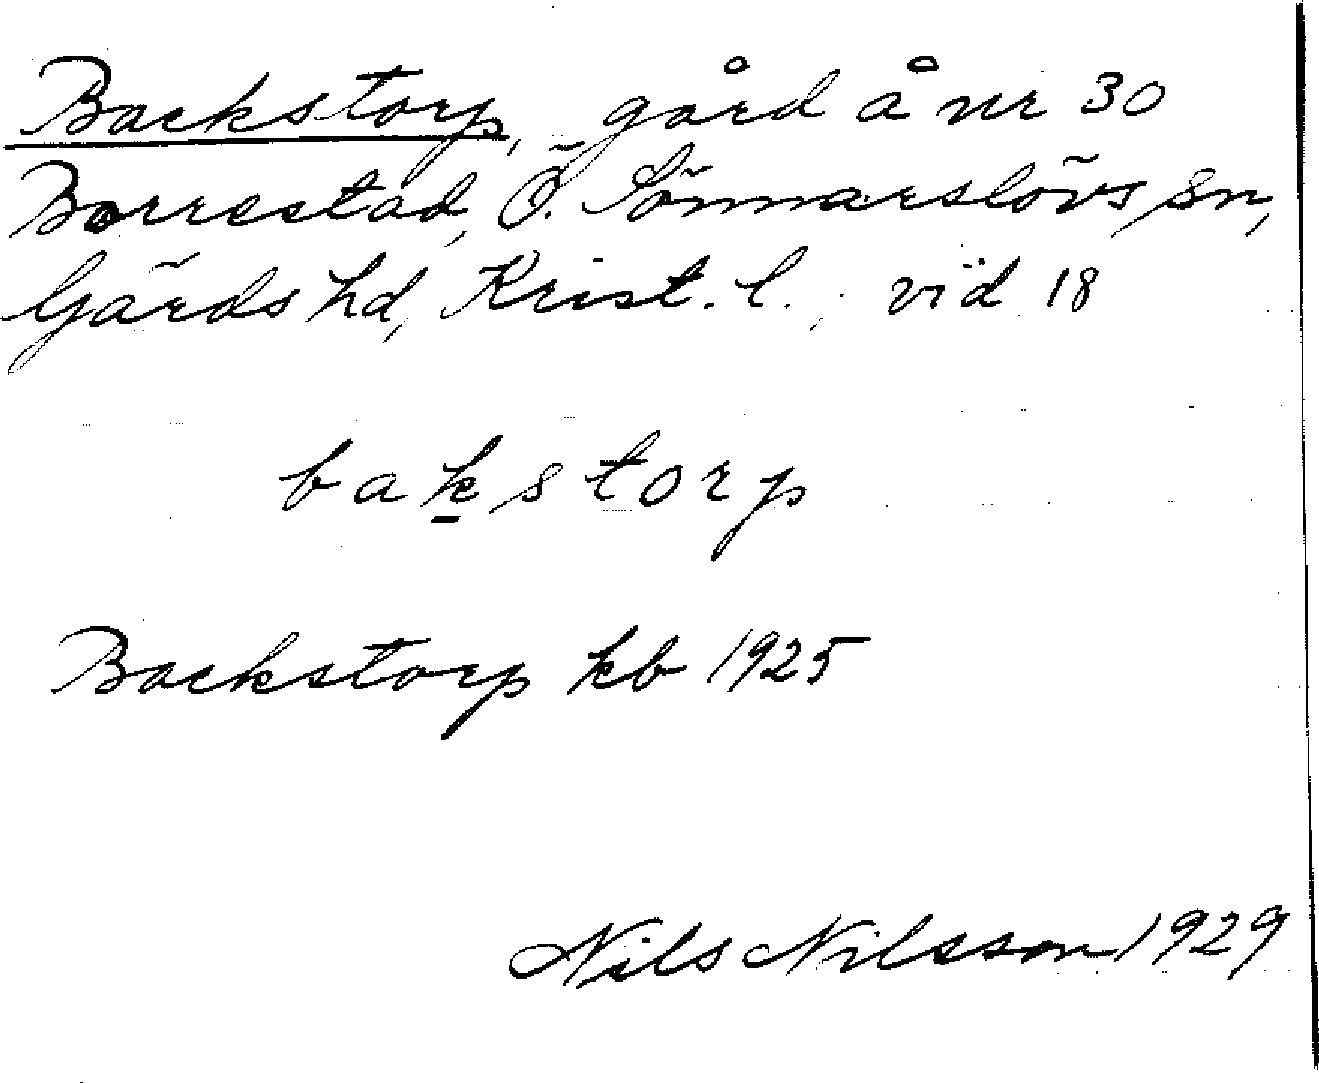 Backstorp, gård å nr 30
Borrestad, Ö. Sönnarslövs sn,
Gärds hd, Krist. l., vid 18
bakstorp
Backstorp kb 1925
Nils Nilsson 1929